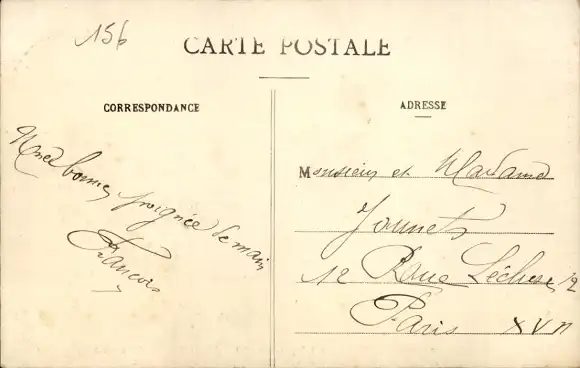 156
CARTE POSTALE
CORRESPONDANCE
Une bonne poignée de main
François
ADRESSE
Monsieur et Madame
12 Rue
Paris XVII